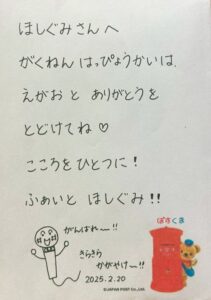 ほしぐみさんへ
がくねん はっぴょうかいは、
えがお と ありがとうを
とどけてね♡
こころをひとつに!
ふぁいと ほしぐみ!!
がんばれー!!
きらきら
かがやけー!!
2025.2.20
ぽすくま
©JAPAN POST Co.,Ltd.